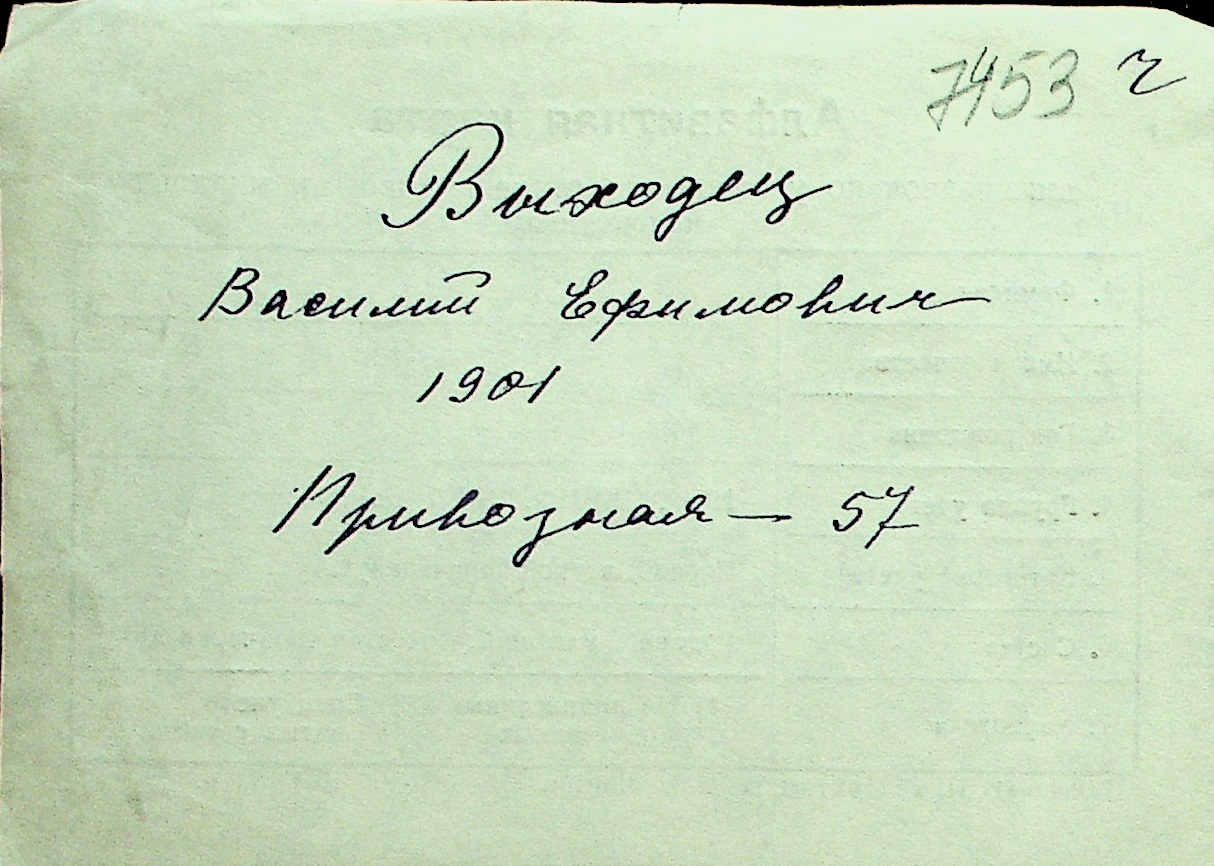 7453 ч
Выходец
Василий Ефимович
1901
Привозная — 57